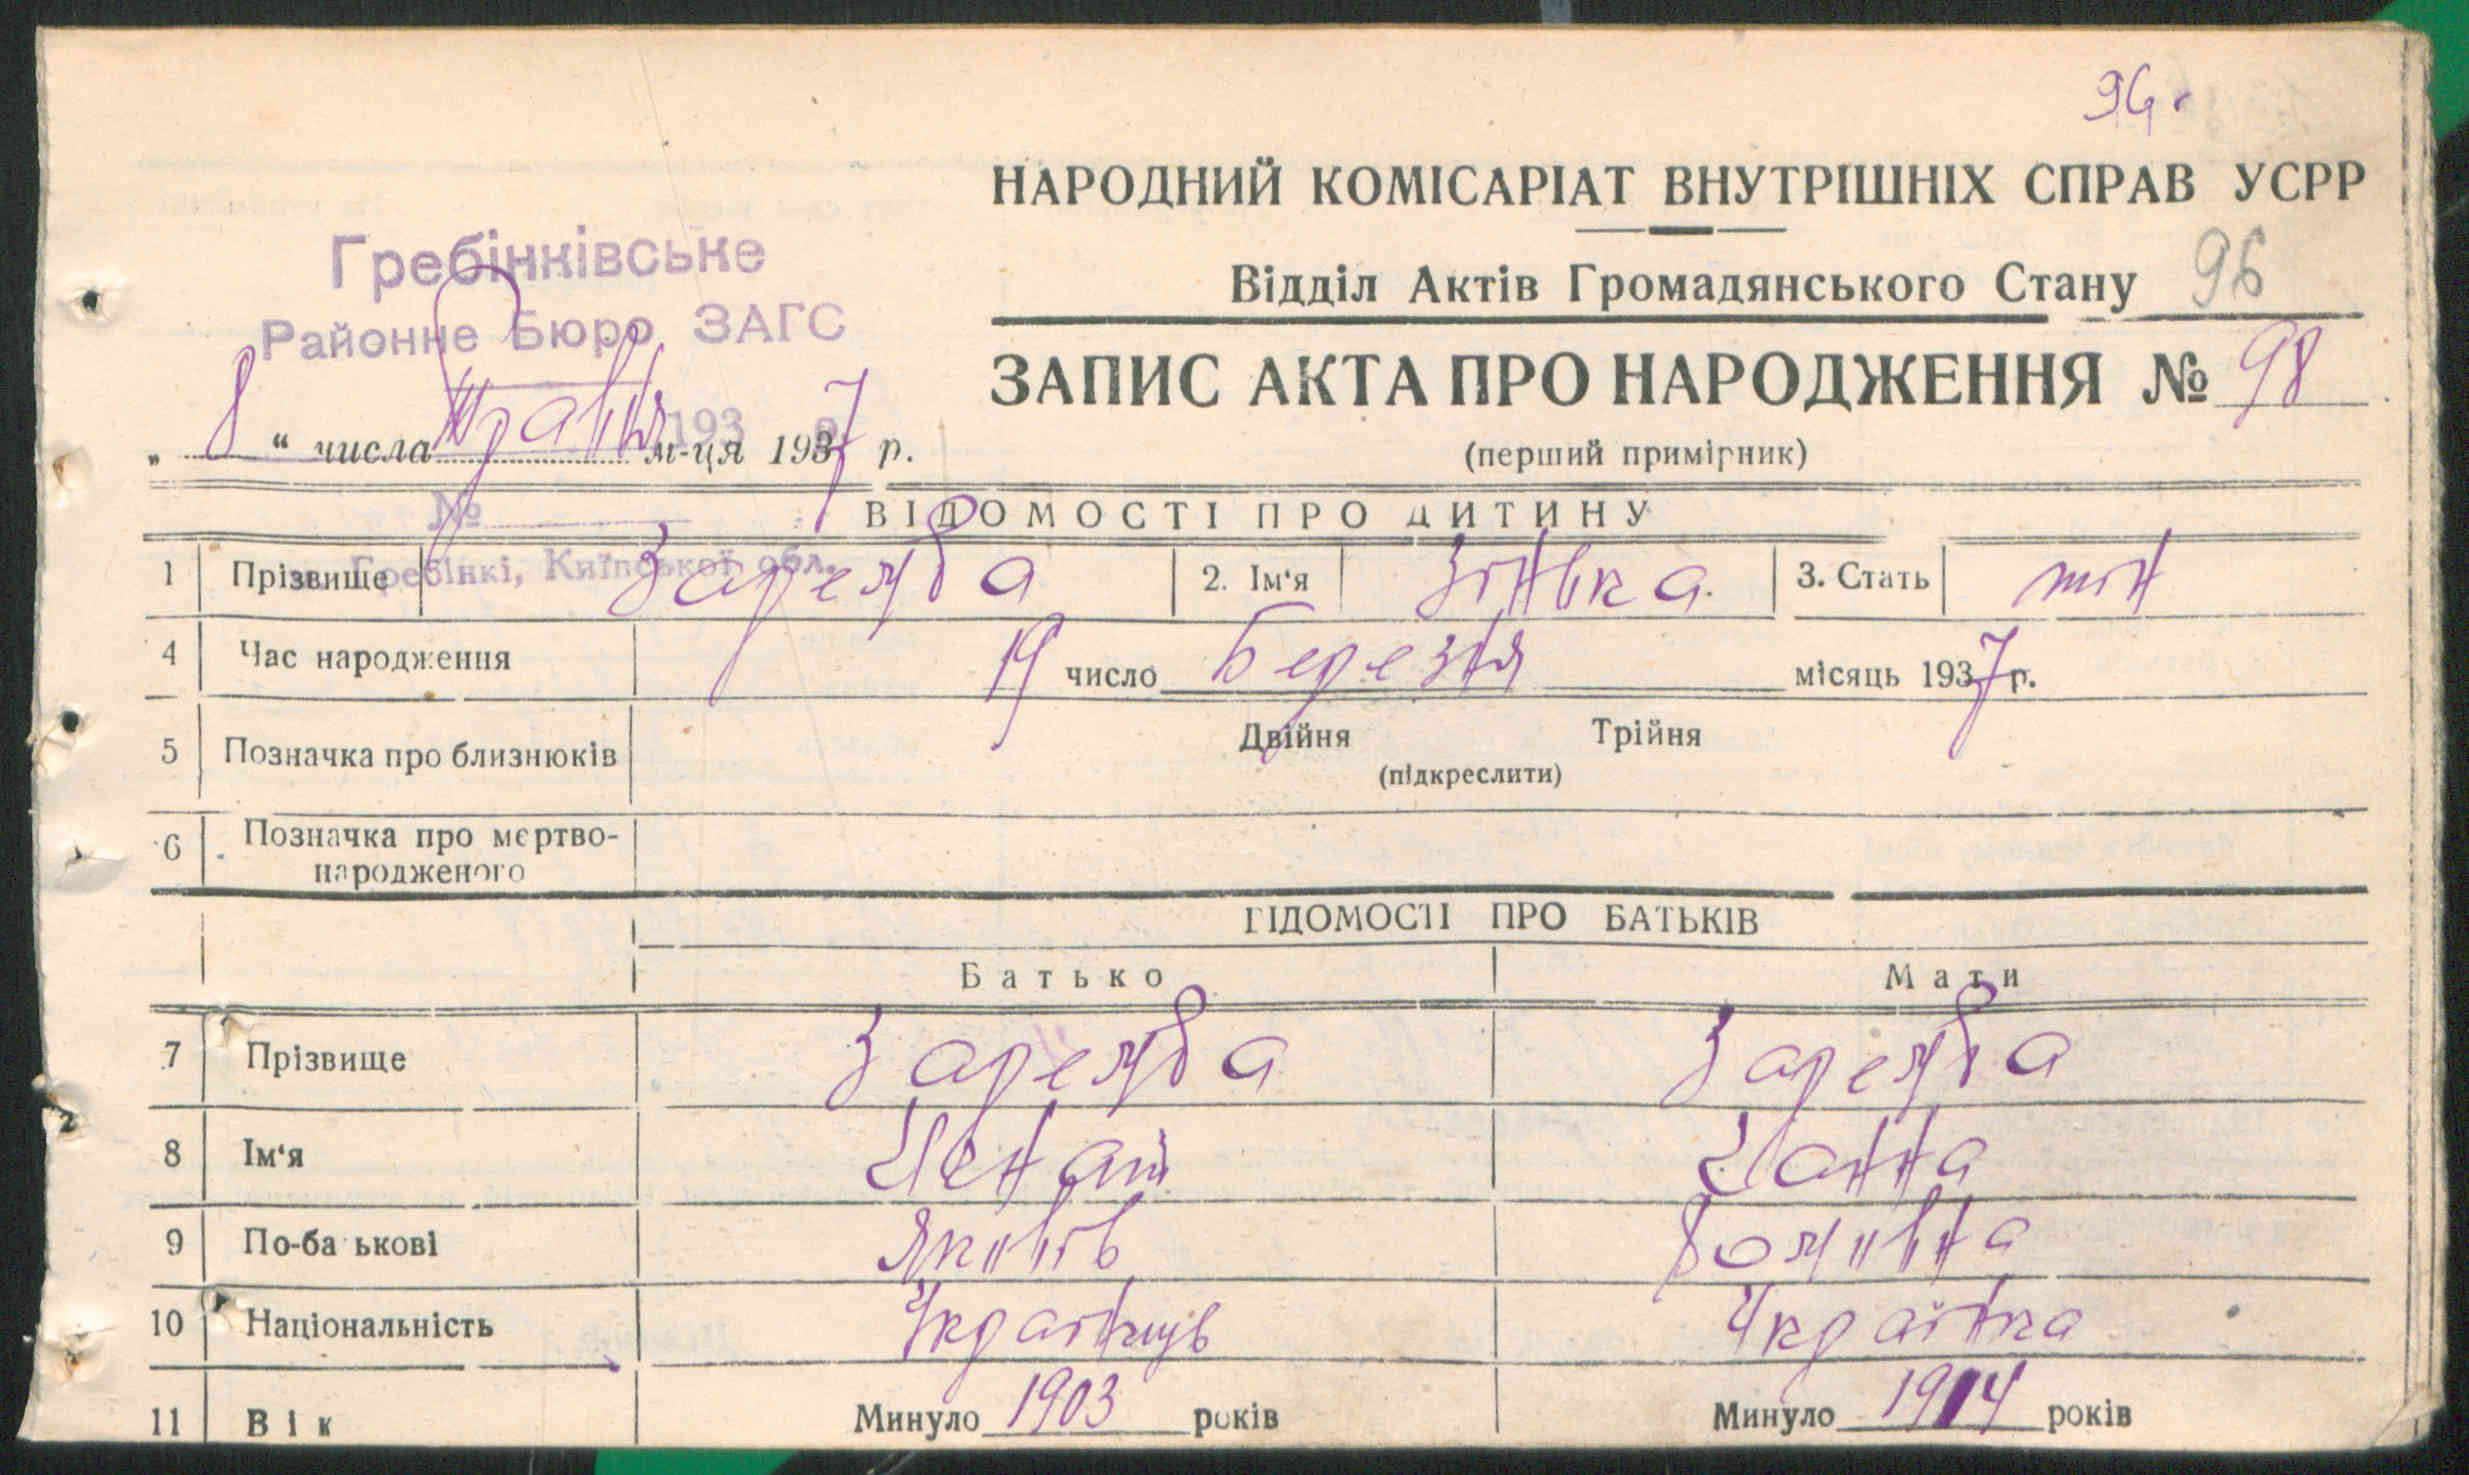 94.
НАРОДНИЙ КОМІСАРІАТ ВНУТРІШНІХ СПРАВ УСРР
Відділ Актів Громадянського Стану 96
Гребінківське
Районне Бюро ЗАГС
ЗАПИС АКТА ПРО НАРОДЖЕННЯ № 98
(перший примірник)
193 р.
„ 8 “ числа травня м-ця 1937 р.
№
м. Гребінкі, Київської обл.
ВІДОМОСТІ ПРО ДИТИНУ
1 Прізвище Заремба 2. Ім'я Зінька. 3. Стать жін
4 Час народження 19 число березня місяць 1937 р.
5 Позначка про близнюків Двійня Трійня
(підкреслити)
6 Позначка про мертво-
народженого
ВІДОМОСТІ ПРО БАТЬКІВ
Батько Мати
7 Прізвище Заремба Заремба
8 Ім'я Ганна
9 По-ба ькові Яковів
10 Національність Українць Українка
11 Вік Минуло 1903 років Минуло 1914 років